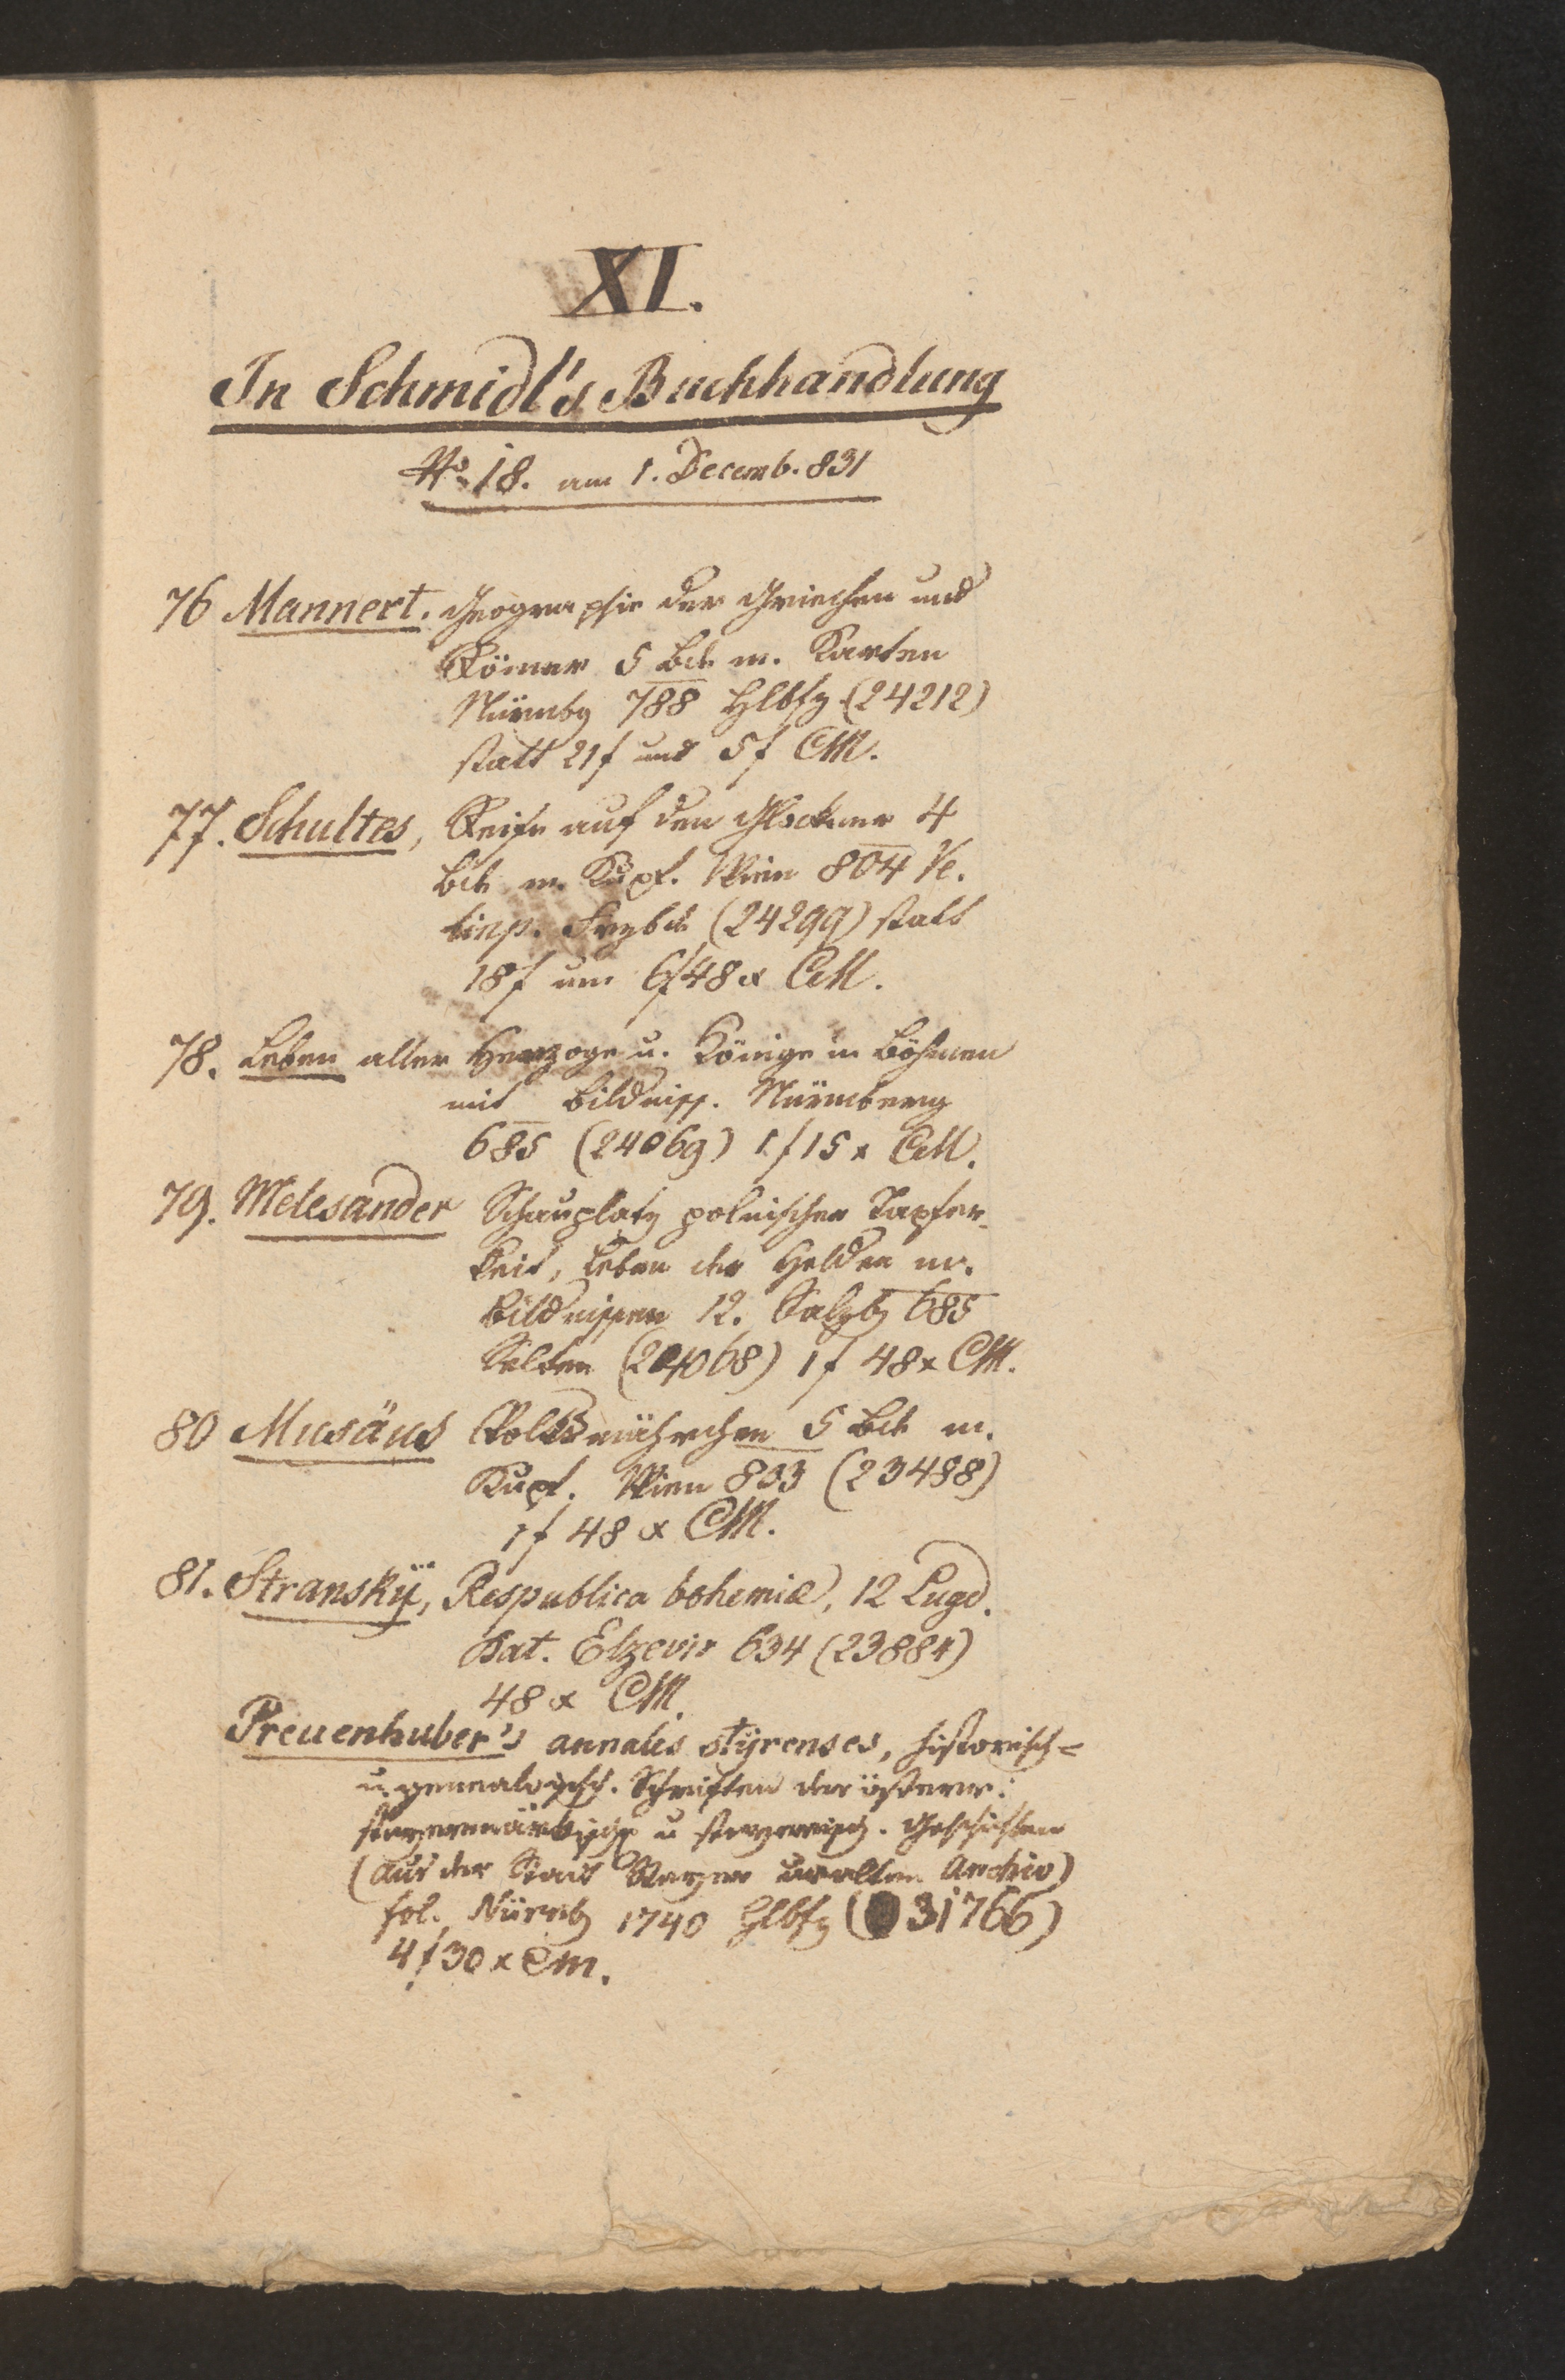 XI.
In Schmidl's Buchhandlung
No 18. am 1. Decemb. 831
76 Mannert. Geographie der Griechen und
Römer 5 Bde m. Karten
Nürnbg 788 Hlbfz (24212)
statt 21f und 5f CM.
77. Schultes, Reise auf den Glockner 4
Bde m. Kupf. Wien 804
(24299) statt
18f um 6f48x CM.
78. Leben aller Herzoge u. Könige in Böhmen
mit Bildniss. Nürnberg
685 (24069) 1f15x CM.
79. Melesander Schauplatz polnischer Tapfer-
keit, Leben der Helden m.
Bildnissen 12. Salzbg 685
Selten (24068) 1f 48x CM.
80 Musäus Volksmährchen 5 Bde m.
Kupf. Wien 803 (23488)
1f 48x CM.
81. Stranskÿ, Respublica bohemiæ, 12 Lugd.
Bat. Elzevir 634 (23884)
48x CM.
Preuenhuber's annales stÿrenses, historisch-
u. genealogisch. Schriften der österr:
steyermärkisch u steyerisch. Geschichten
(aus der Stadt Steyer uralten Archiv)
fol. Nürnbg 1740 Hlbfz (31766)
4f30x CM.